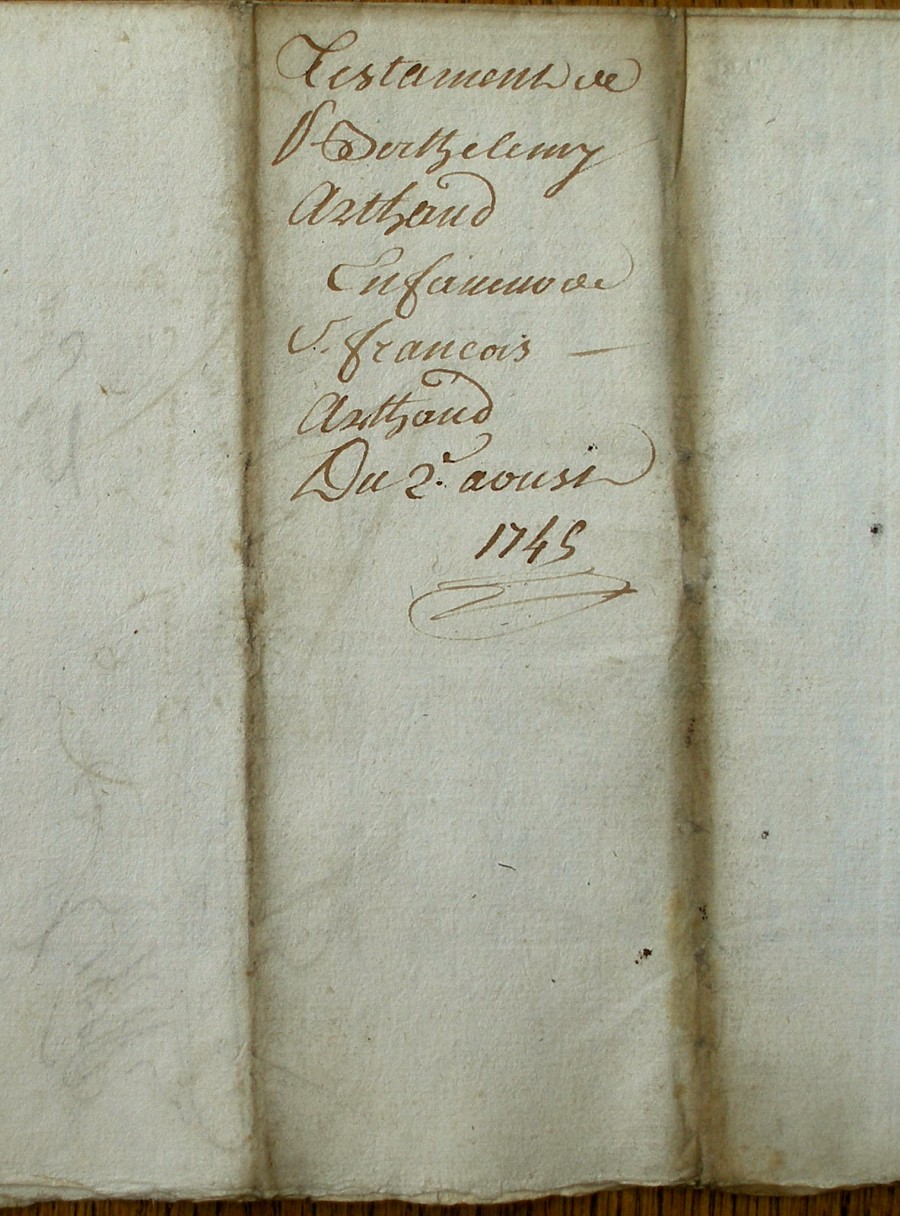 Testament de
Sr Berthelemy
Arthaud
En faveur de
Sr. francois
Arthaud
Du 2e. aoust
1745